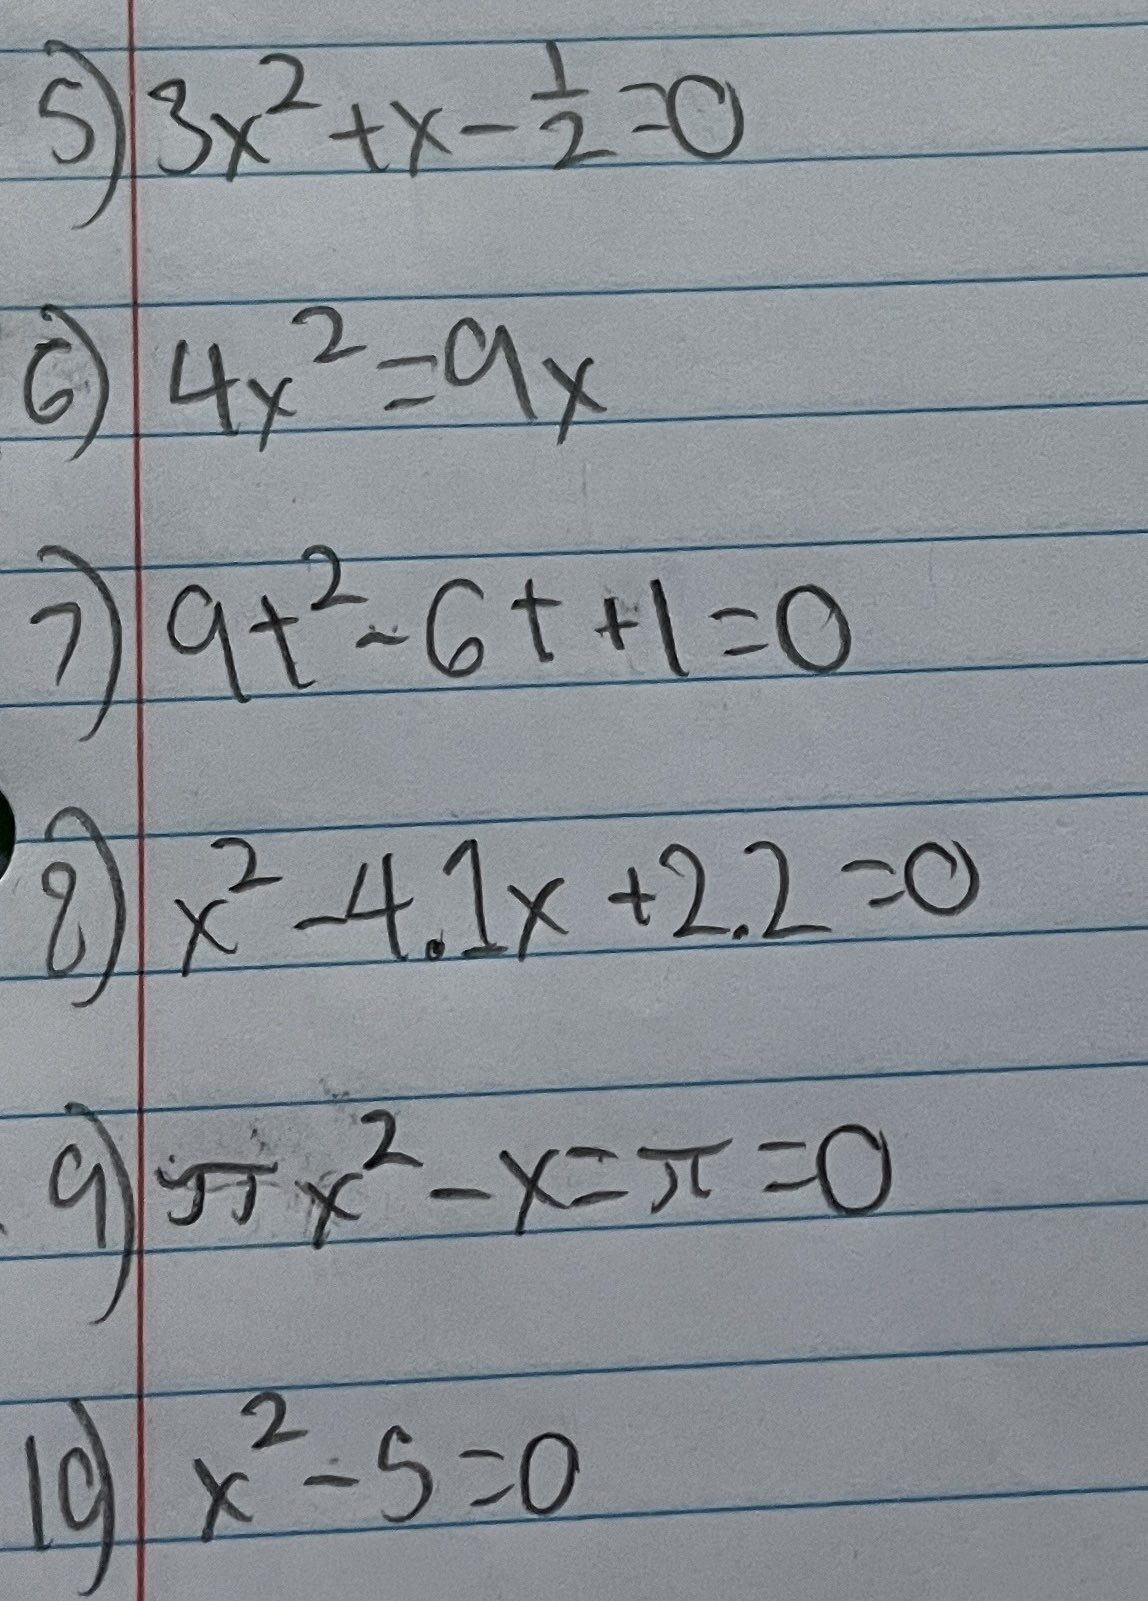 5) 3x² + x - 1/2 = 0
6) 4x² = 9x
7) 9t² - 6t + 1 = 0
8) x² - 4.1x + 2.2 = 0
9) πx² - x = π = 0
10) x² - 5 = 0